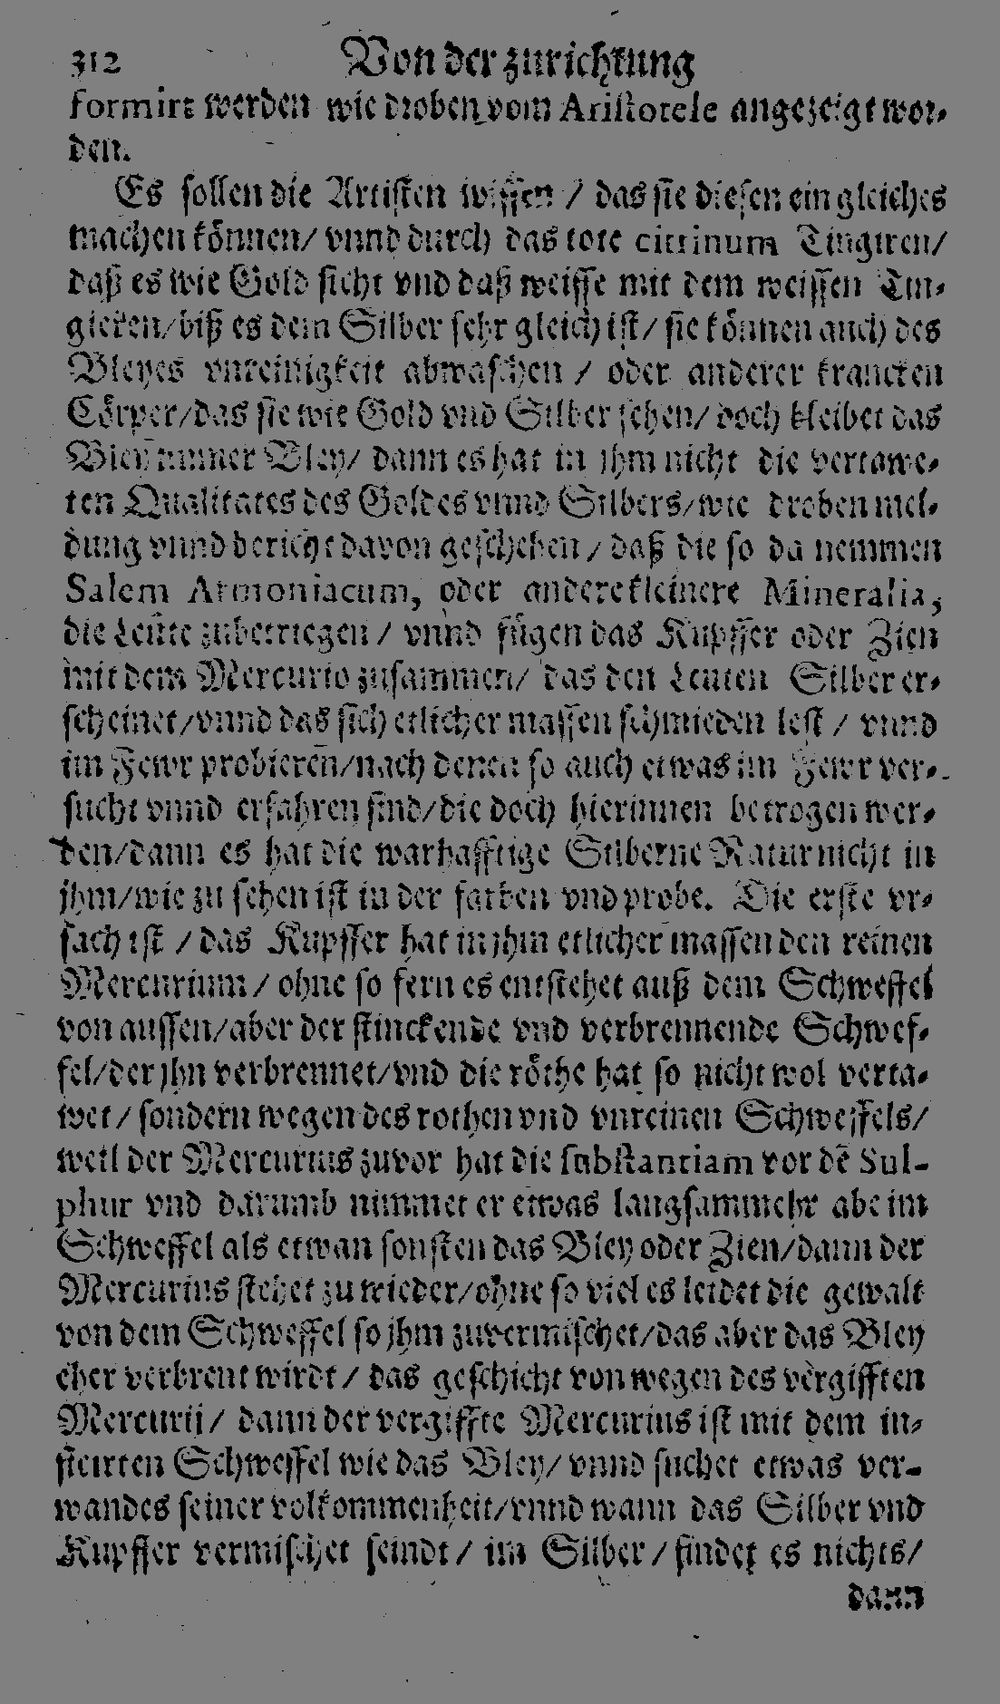 312 Von der zurichtung
formirt werden wie droben vom Aristotele angezeigt wor-
den.
Es sollen die Artisten wissen / das sie diesen ein gleiches
machen können/ vnnd durch das rote citrinum Tingiren/
daß es wie Gold sicht vnd daß weisse mit dem weissen Tin-
gieren/biß es dem Silber sehr gleich ist/ sie können auch des
Bleyes vnreinigkeit abwaschen / oder anderer krancken
Cörper/das sie wie Gold vnd Silber sehen/ doch bleibet das
Bley immer Bley/ dann es hat in jhm nicht die vertawe-
ten Qualitates des Goldes vnnd Silbers/wie droben mel-
dung vnnd bericht davon geschehen / daß die so da nemmen
Salem Armoniacum, oder andere kleinere Mineralia,
die Leute zubetriegen / vnnd fügen das Kupffer oder Zien
mit dem Mercurio zusammen/ das den Leuten Silber er-
scheinet/vnnd das sich etlicher massen schmieden lest / vnnd
im Fewr probieren/nach denen so auch etwas im Fewr ver-
sucht vnnd erfahren sind/die doch hierinnen betrogen wer-
den/dann es hat die warhafftige Silberne Natur nicht in
jhm/wie zu sehen ist in der farben vnd probe. Die erste vr-
sach ist / das Kupffer hat in jhm etlicher massen den reinen
Mercurium/ ohne so fern es entstehet auß dem Schweffel
von aussen/aber der stinckende vnd verbrennende Schwef-
fel/der jhn verbrennet/vnd die röthe hat so nicht wol verta-
wet / sondern wegen des rothen vnd vnreinen Schweffels/
weil der Mercurius zuvor hat die substantiam vor dē Sul-
phur vnd darumb nimmet er etwas langsammehr abe im
Schweffel als etwan sonsten das Bley oder Zien/dann der
Mercurius stehet zu wieder/ohne so viel es leidet die gewalt
von dem Schweffel so jhm zuvermischet/das aber das Bley
eher verbrent wirdt / das geschicht von wegen des vergifften
Mercurij/ dann der vergiffte Mercurius ist mit dem in-
ficirten Schweffel wie das Bley/ vnnd suchet etwas ver-
wandes seiner volkommenheit/vnnd wann das Silber vnd
Kupffer vermischet seindt / im Silber / findet es nichts/
dann